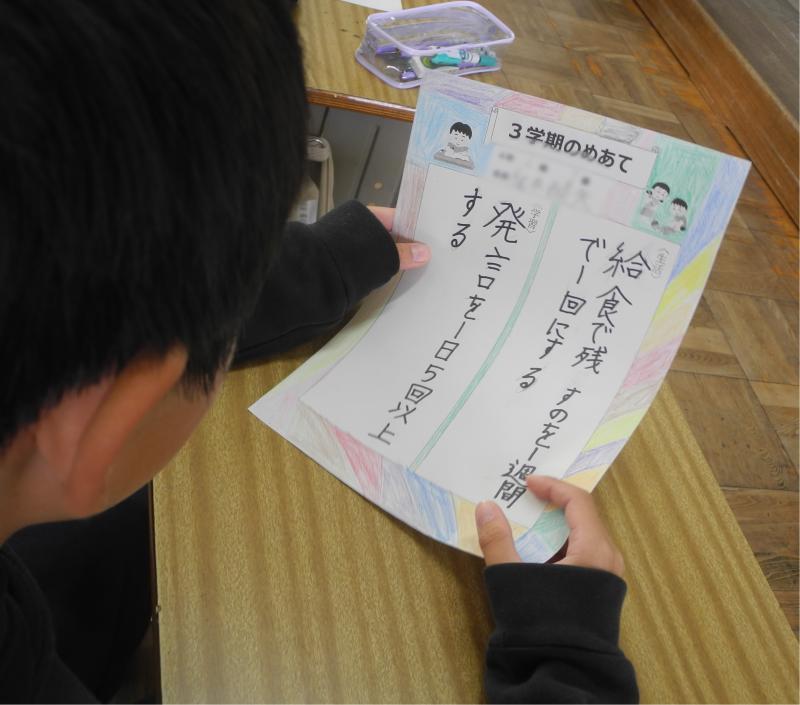 3学期のめあて
(生活)
給食で残すのを一週間
で一回にする
(学習)
発言を一日5回以上
する